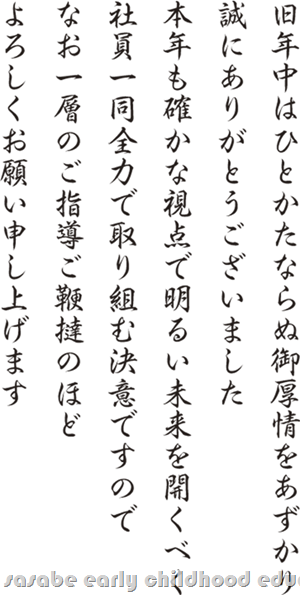 旧年中はひとかたならぬ御厚情をあずかり
誠にありがとうございました
本年も確かな視点で明るい未来を開くべく
社員一同全力で取り組む決意ですので
なお一層のご指導ご鞭撻のほど
よろしくお願い申し上げます
sasabe early childhood edu